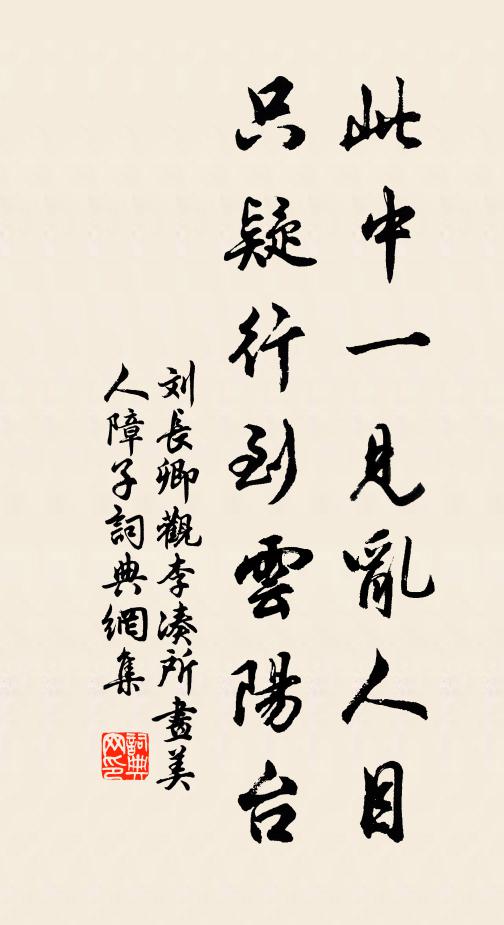 此中一見亂人目
只疑行到雲陽台
刘長卿觀李湊所畫美
人障子詞典網集
詞典
网印